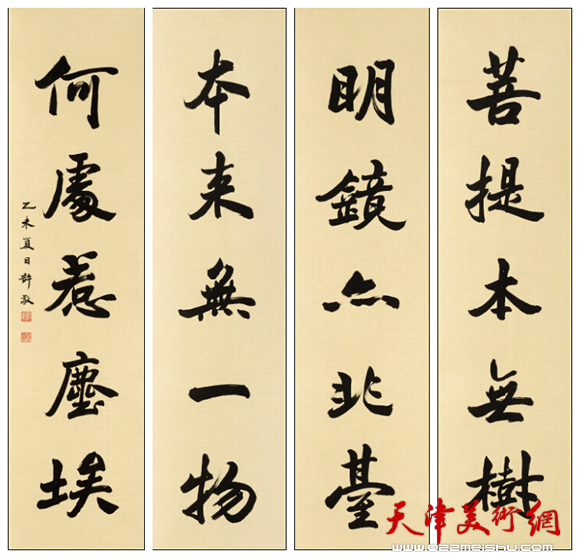 菩提本無樹
明鏡亦非臺
本来無一物
何處惹塵埃
乙未夏日
天津美術網